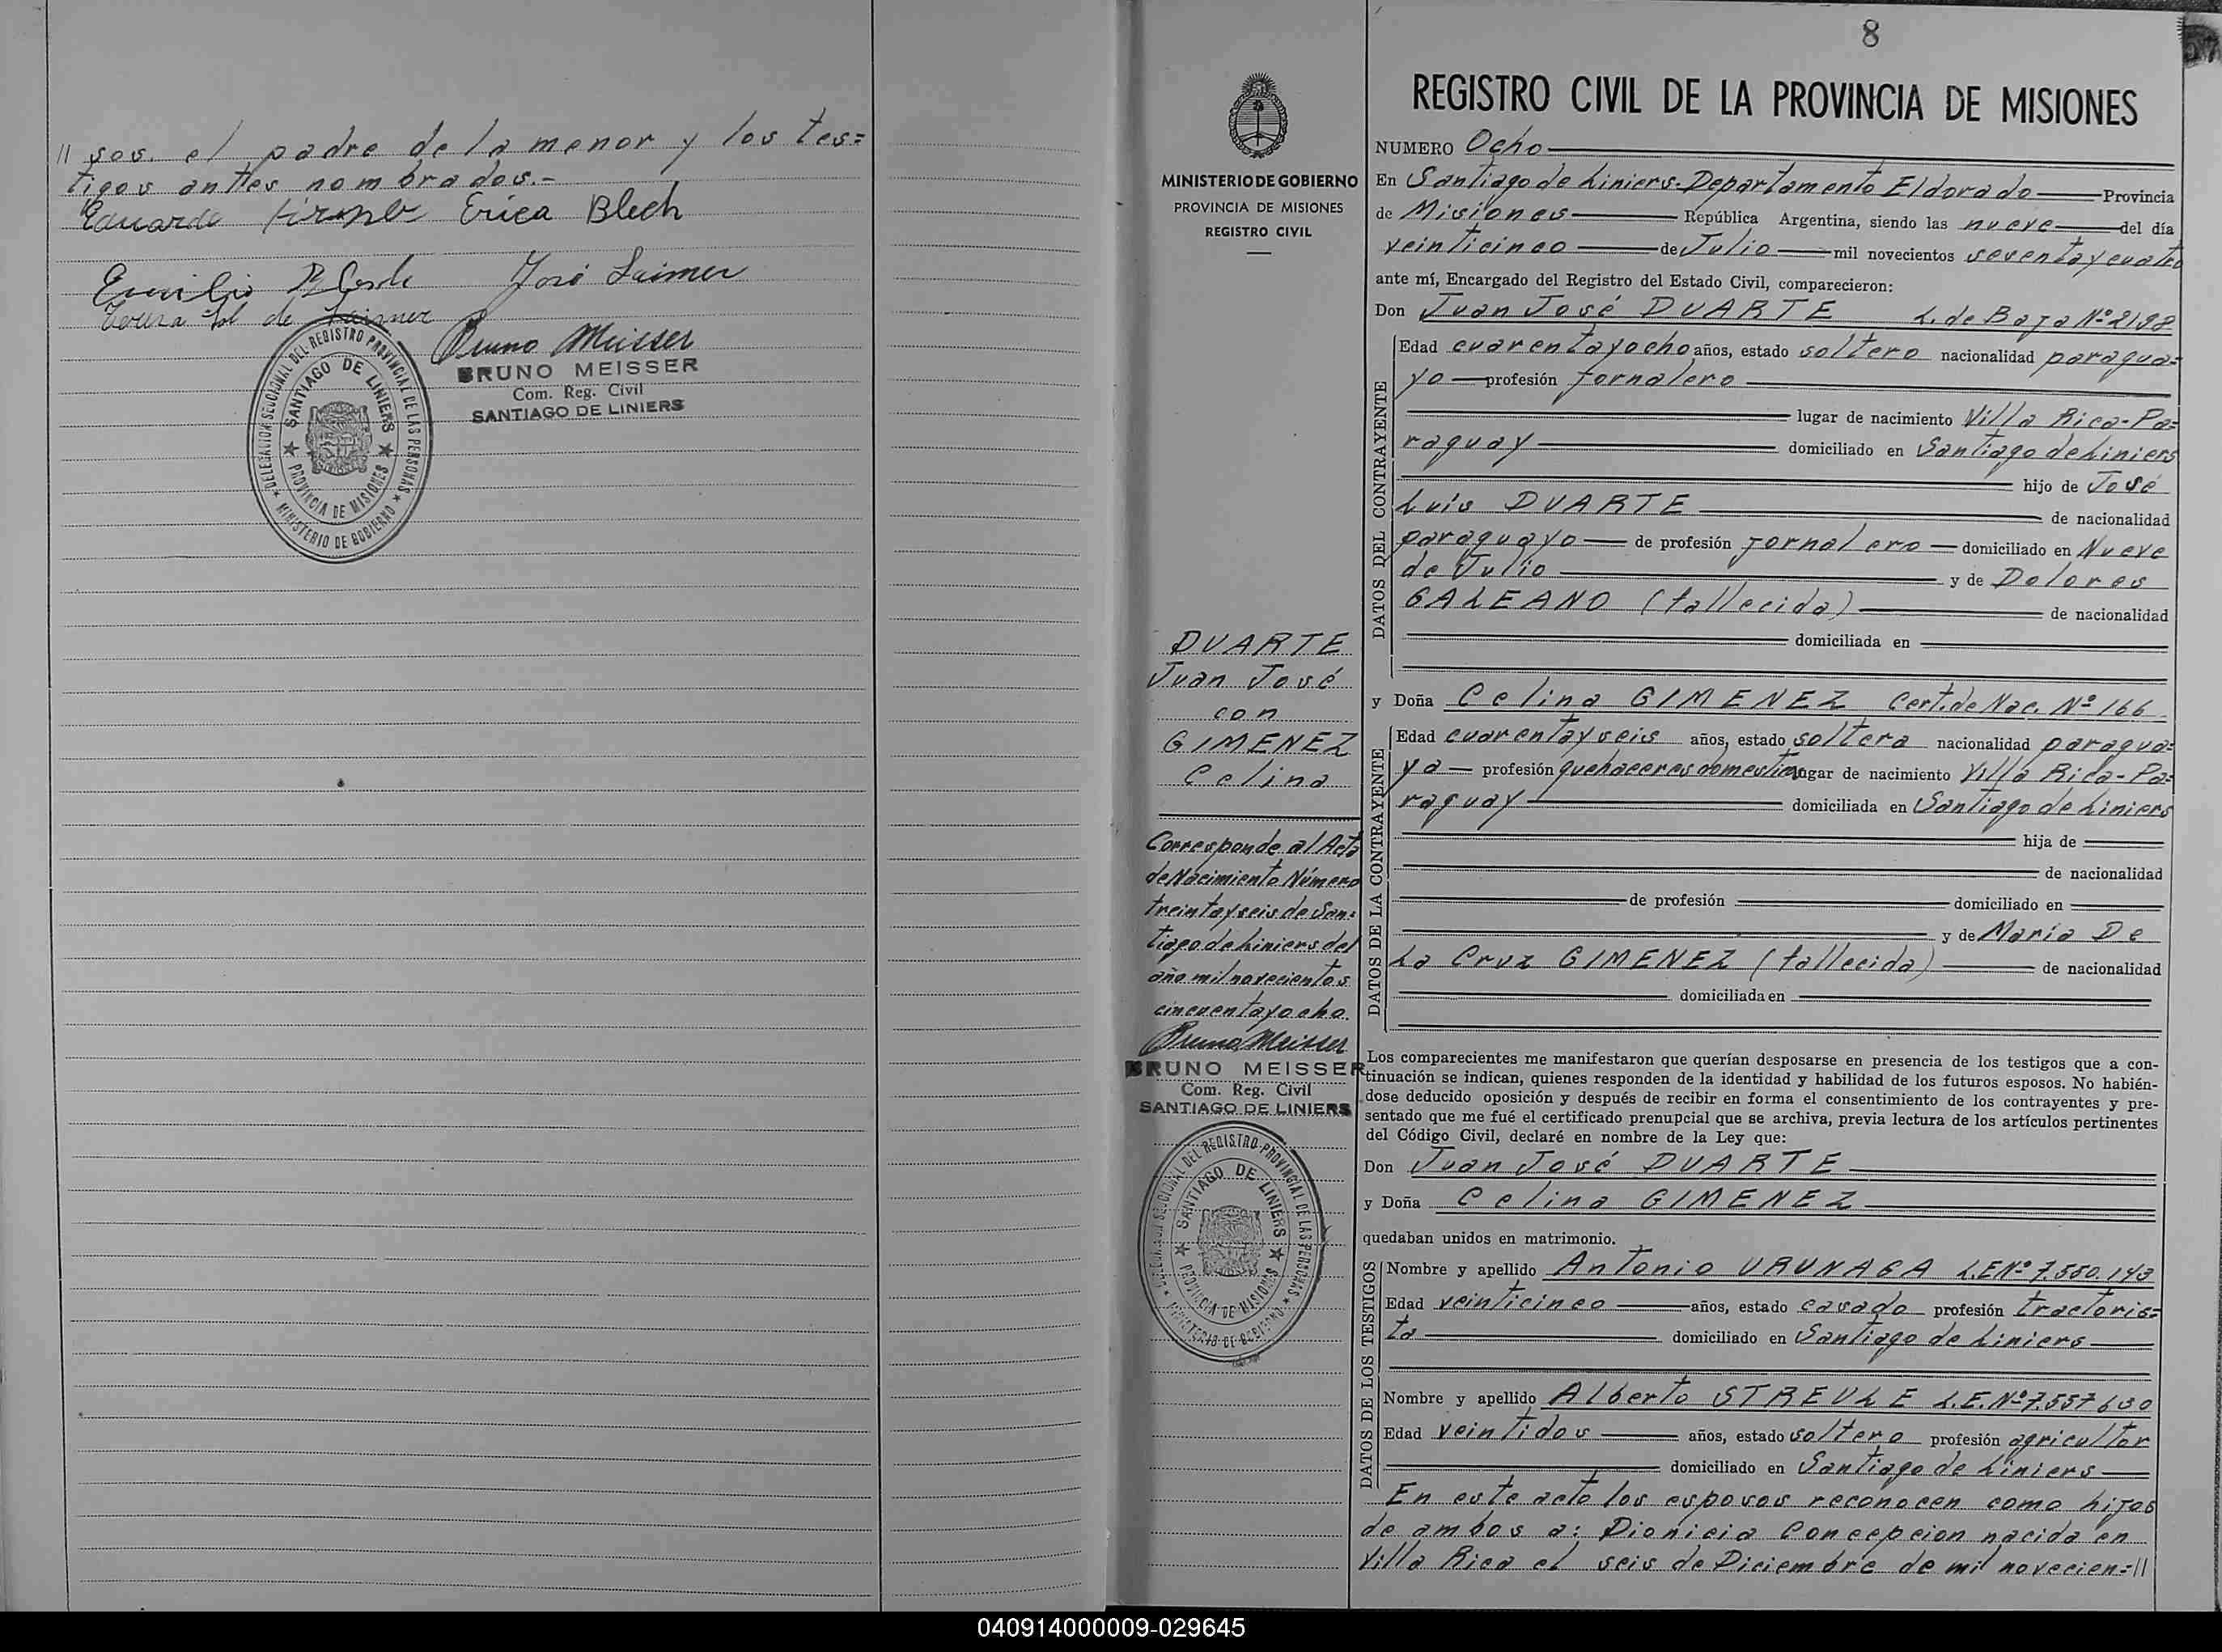 // sos. el padre de la menor y los tes=
tigos antes nombrados.-
Eduardo Erica Blech
Emilio José Laimer
de Laimer
Bruno Meisser
BRUNO MEISSER
Com. Reg. Civil
SANTIAGO DE LINIERS
DELEGACION SECCIONAL DEL REGISTRO PROVINCIAL DE LAS PERSONAS
SANTIAGO DE LINIERS
PROVINCIA DE MISIONES
MINISTERIO DE GOBIERNO
MINISTERIO DE GOBIERNO
PROVINCIA DE MISIONES
REGISTRO CIVIL
DUARTE
Juan José
con
GIMENEZ
Celina
Corresponde al Acta
de Nacimiento Número
treinta y seis de San=
tiago de Liniers del
año mil novecientos
cincuenta y ocho.
Bruno Meisser
BRUNO MEISSER
Com. Reg. Civil
SANTIAGO DE LINIERS
DELEGACION SECCIONAL DEL REGISTRO PROVINCIAL DE LAS PERSONAS
SANTIAGO DE LINIERS
PROVINCIA DE MISIONES
MINISTERIO DE GOBIERNO
8
REGISTRO CIVIL DE LA PROVINCIA DE MISIONES
NUMERO Ocho
En Santiago de Liniers-Departamento Eldorado Provincia
de Misiones República Argentina, siendo las nueve del día
veinticinco de Julio mil novecientos
ante mí, Encargado del Registro del Estado Civil, comparecieron:
Don Juan José DUARTE L. de Baja Nº 2198
DATOS DEL CONTRAYENTE
Edad cuarenta y ocho años, estado soltero nacionalidad paragua=
yo profesión jornalero
lugar de nacimiento Villa Rica-Pa=
raguay domiciliado en Santiago de Liniers
hijo de José
Luis DUARTE de nacionalidad
paraguayo de profesión jornalero domiciliado en Nueve
de Julio y de Dolores
GALEANO (fallecida) de nacionalidad
domiciliada en
y Doña Celina GIMENEZ Cert. de Nac. Nº 166
DATOS DE LA CONTRAYENTE
Edad cuarenta y seis años, estado soltera nacionalidad paragua=
ya profesión quehaceres domesticos lugar de nacimiento Villa Rica-Pa=
raguay domiciliada en Santiago de Liniers
hija de
de nacionalidad
de profesión domiciliado en
y de María De
La Cruz GIMENEZ (fallecida) de nacionalidad
domiciliada en
Los comparecientes me manifestaron que querían desposarse en presencia de los testigos que a con-
tinuación se indican, quienes responden de la identidad y habilidad de los futuros esposos. No habién-
dose deducido oposición y después de recibir en forma el consentimiento de los contrayentes y pre-
sentado que me fué el certificado prenupcial que se archiva, previa lectura de los artículos pertinentes
del Código Civil, declaré en nombre de la Ley que:
Don Juan José DUARTE
y Doña Celina GIMENEZ
quedaban unidos en matrimonio.
DATOS DE LOS TESTIGOS
Nombre y apellido Antonio URUNAGA L.E Nº 7.550.143
Edad veinticinco años, estado casado profesión tractoris=
ta domiciliado en Santiago de Liniers
Nombre y apellido Alberto STREULE L.E. Nº 7.557630
Edad veintidos años, estado soltero profesión agricultor
domiciliado en Santiago de Liniers
En este acto los esposos reconocen como hijos
de ambos a: Dionicia Concepcion nacida en
Villa Rica el seis de Diciembre de mil novecien=//
040914000009-029645